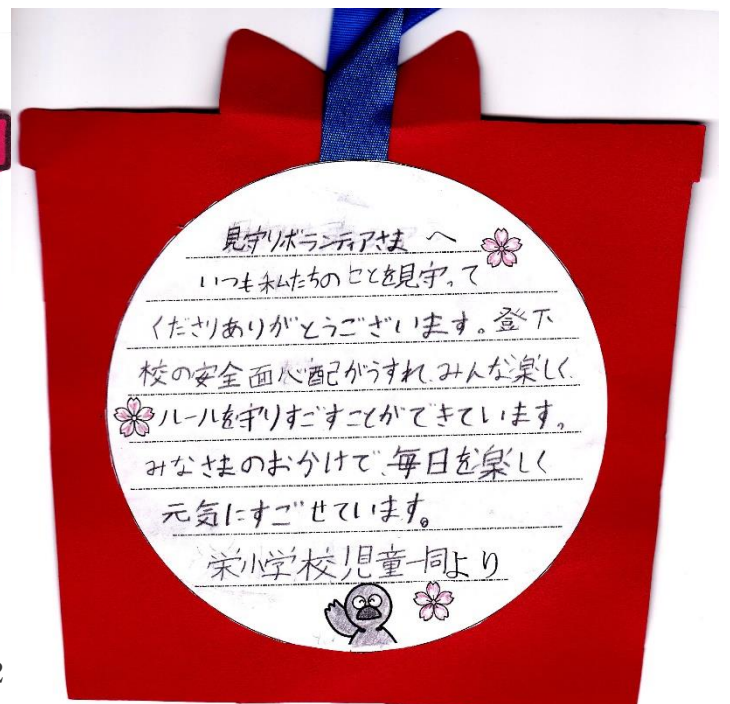 見守りボランティアさま へ
いつも私たちのことを見守って
くださりありがとうございます。登下
校の安全面心配がうすれ、みんな楽しく、
ルールを守りすごすことができています。
みなさまのおかげで、毎日を楽しく
元気にすごせています。
栄小学校児童一同より
2